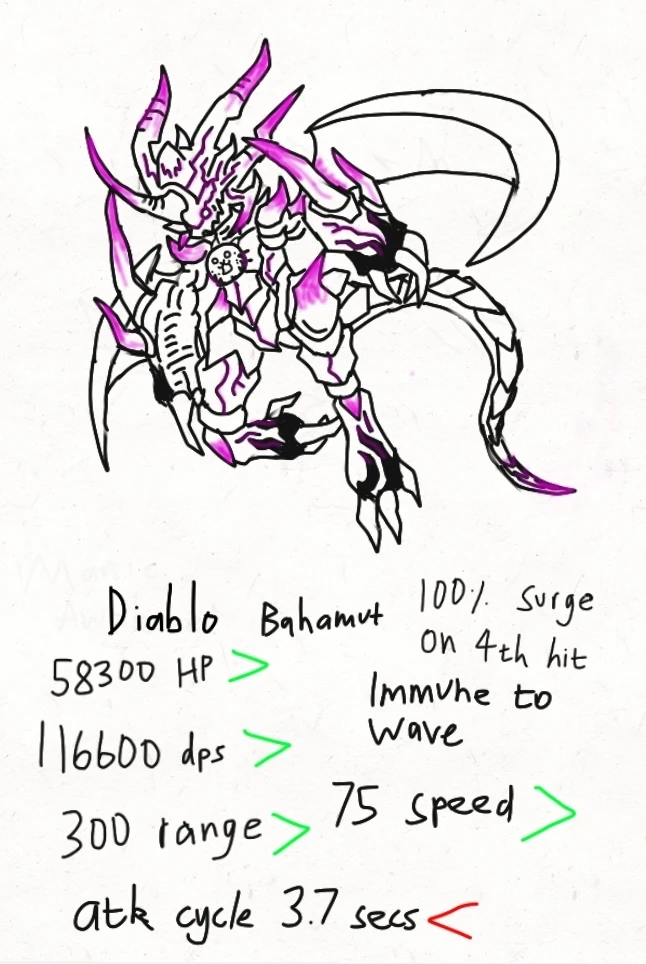 Diablo Bahamut
58300 HP >
116600 dps >
300 range >
100% surge
on 4th hit
Immune to
wave
75 speed >
atk cycle 3.7 secs <